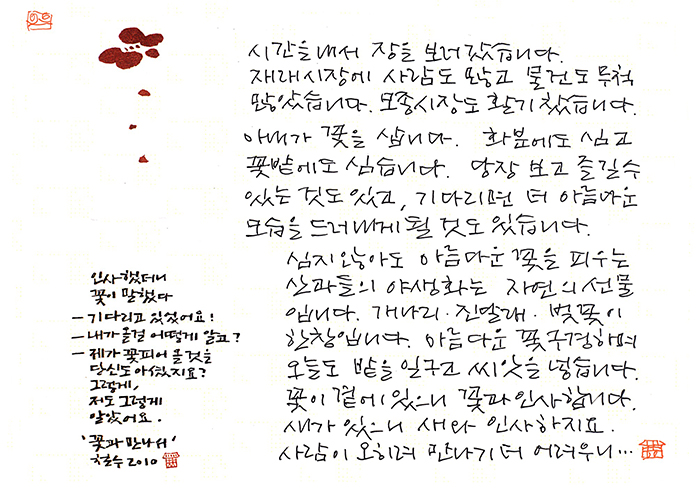 시간을 내서 장을 보러 갔습니다.
재래시장에 사람도 많고 물건도 무척
많았습니다. 모종시장도 활기찼습니다.
아내가 꽃을 삽니다. 화분에도 심고
꽃밭에도 심습니다. 당장 보고 즐길 수
있는 것도 있고, 기다리면 더 아름다운
모습을 드러내게 될 것도 있습니다.
심지 않아도 아름다운 꽃을 피우는
산과 들의 야생화는 자연의 선물
입니다. 개나리·진달래·벚꽃이
한창입니다. 아름다운 꽃구경하며
오늘도 밭을 일구고 씨앗을 넣습니다.
꽃이 곁에 있으니 꽃과 인사합니다.
새가 있으니 새와 인사하지요.
사람이 오히려 만나기 더 어려우니...
인사했더니
꽃이 말했다
- 기다리고 있었어요!
- 내가 올걸 어떻게 알고?
- 제가 꽃피어 올 것을
당신도 아셨지요?
그렇게,
저도 그렇게
알았어요.
'꽃과 만나서'
철수 2010